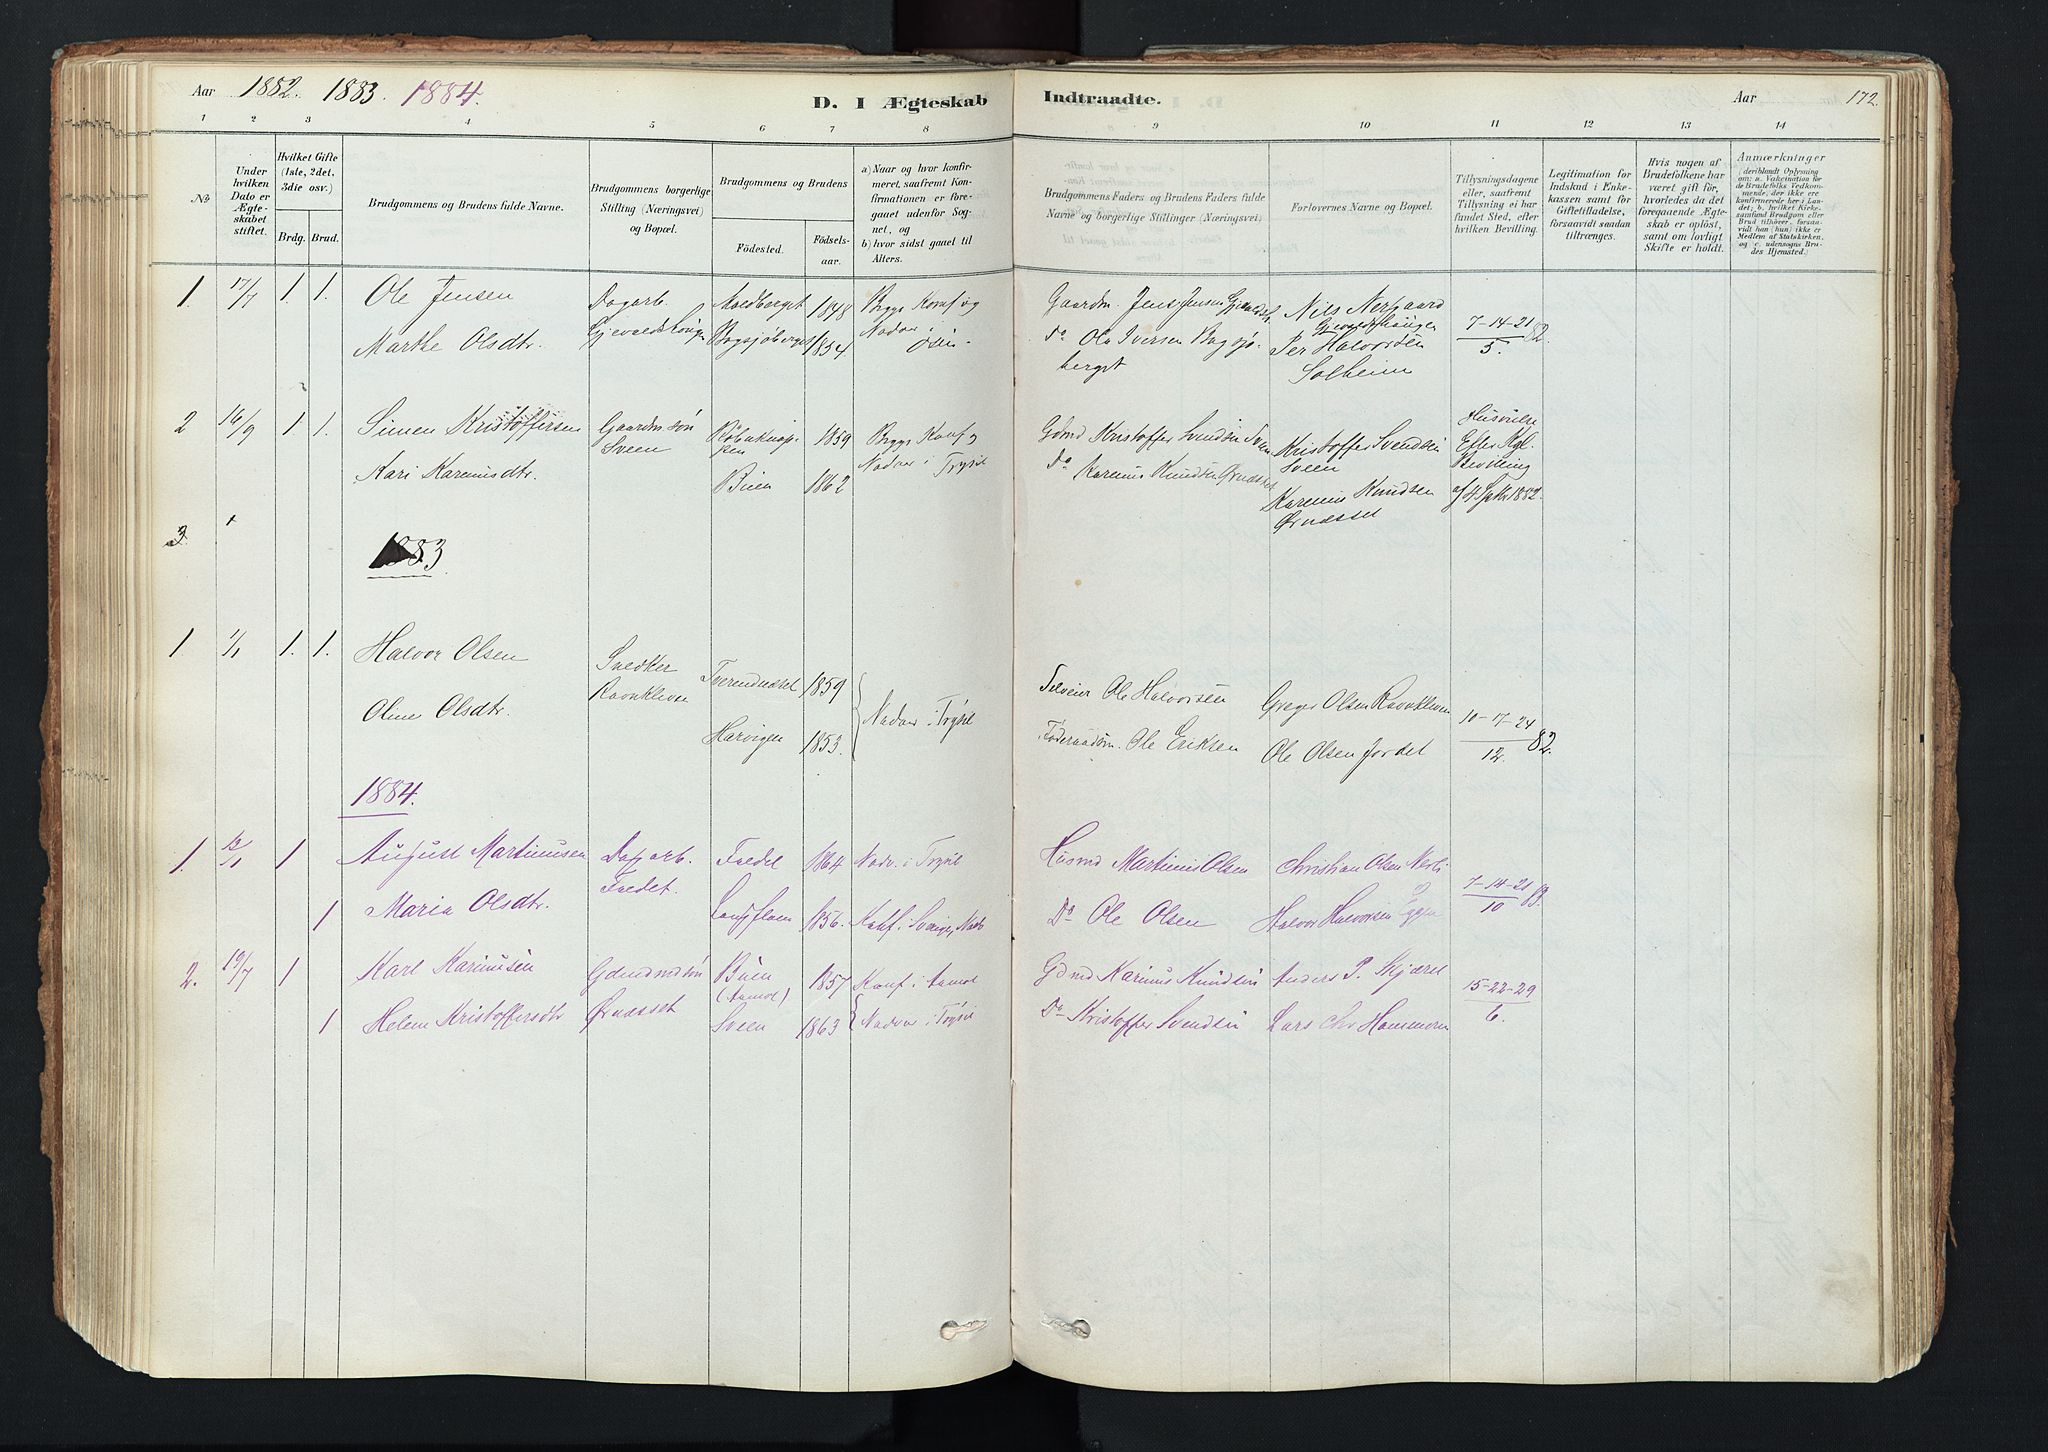 Aar 1882. 1883. 1884.
D. I Ægteskab Indtraadte.
Aar 172.
1 2 3 4 5 6 7 8 9 10 11 12 13 14
No
Under hvilken Dato er Ægteskabet stiftet.
Hvilket Gifte (1ste, 2det, 3die osv.)
Brdg. Brud.
Brudgommens og Brudens fulde Navne.
Brudgommens borgerlige Stilling (Næringsvei) og Bopæl.
Brudgommens og Brudens
Fødested. Fødselsaar.
a) Naar og hvor konfirmeret, saafremt Konfirmationen er foregaaet udenfor Sognet, og
b) hvor sidst gaaet til Alters.
Brudgommens Faders og Brudens Faders fulde Navne og borgerlige Stillinger (Næringsvei)
Forlovernes Navne og Bopæl.
Tillysningsdagene eller, saafremt Tillysning ei har fundet Sted, efter hvilken Bevilling.
Legitimation for Indskud i Enkekassen samt for Giftetilladelse, forsaavidt saadan tiltrænges.
Hvis nogen af Brudefolkene har været gift før, hvorledes da det foregaaende Ægteskab er opløst, samt om lovligt Skifte er holdt.
Anmærkninger (deriblandt Oplysning om: a. Vakcination for de Brudefolks Vedkommende, der ikke ere konfirmerede her i Landet; b. hvilket Kirkesamfund Brudgom eller Brud tilhører, forsaavidt han (hun) ikke er Medlem af Statskirken, og c. udensogns Brudes Hjemsted.
1 17/7 1. 1. Ole Jensen Dagarb. 1848 Begge Konf og Gaardm. Jens Jensen Nils Nergaard
Marthe Olsdtr. Bagsjøberget 1854 Nadv. i Do Ole Iversen Bagsjøberget Per Halvorsen Solheim 7-14-21/5 82.
2 16/9 1 1. Simen Kristoffersen Gaardmsøn Sveen 1859 Begge Konf og Gdmd Kristoffer Svendsen Sveen Kristoffer Svendsen Sveen Husvielse Efter Kgl. Bevilling
Kari Karenusdtr. Buen 1862 Nadv. i Trysil Do Karenus Knudsen Ørnæsset Karenus Knudsen Ørnæsset af 4 Sptbr 1882.
3.
1883
1 1/1 1. 1. Halvor Olsen Snedker Ravnkleven 1859 Ole Halvorsen Greger Olsen Ravnkleven
Oline Olsdtr. 1853. Nadv. i Trysil Føderaadsm. Ole Eriksen Ole Olsen Jordet 10-17-24/12. 82.
1884.
1. 1 August Martinusen Dagarb. 1864 Nadv. i Trysil Husmd Martinus Olsen Christian Olsen Nerli
1 Maria Olsdtr. 1856. Konf. i Sverige, Nadv Do Ole Olsen Halvor Halvorsen 7-14-21/10 83.
2. 19/7 1 Karl Karinusen Ørnæsset Buen (Aamot) 1857 Konf i Aamot Gdmd Karinus Knudsen Anders P. Skjæret
1 Helene Kristoffersdtr Sveen 1863 Nadver i Trysil Do Kristoffer Svendsen Lars Chr Hammeren 15-22-29/6.